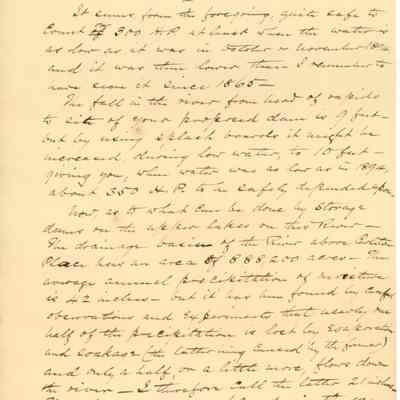 It seems from the foregoing, quite safe to
count 300 H.P. at least when the water is
as low as it was in October or November 1894
and it was then lower than I remember to
have seen it since 1865 -
The fall in the river from head of rapids
to site of your proposed dam is 9 feet -
but by using splash boards it might be
increased, during low water, to 10 feet -
giving you, when water was as low as in 1894,
about 350 H.P. to be safely depended upon.
Now, as to what can be done by storage
dams on the upper lakes on this River -
The drainage basin of the River above
Place has an area of 588 200 acres - The
average annual precipitation of moisture
is 42 inches - but it has been found by careful
observations and experiments that nearly one
half of the precipitation is lost by evaporation
and soakage (the latter being by the former)
and only a half, or a little more, flows down
the river - I therefore call the latter 21 inches